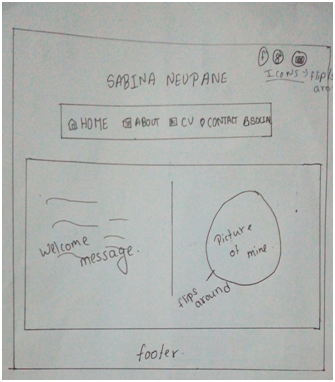 f
ICONS → flips
aro
SABINA NEUPANE
HOME ABOUT CV CONTACT SOCIAL
Welcome
message.
Picture
of mine
flips
around
footer.